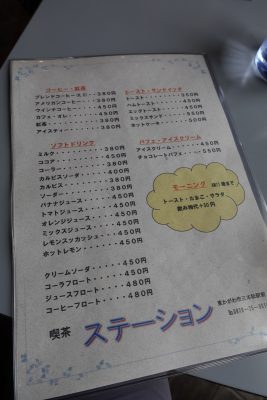 コーヒー・紅茶
ブレンドコーヒー 380円
アメリカンコーヒー・・・380円
ウインナコーヒー・・・・450円
カフェ・オレ・・・・・450円
紅茶・・・・・・・・380円
アイスティー・・・・・380円
ソフトドリンク
ミルク・・・・・・・380円
ココア・・・・・・・450円
コーラー・・・・・・380円
カルピスソーダ・・・・400円
カルピス・・・・・・380円
ソーダー・・・・・・380円
バナナジュース・・・・450円
トマトジュース・・・・450円
オレンジジュース・・・450円
ミックスジュース・・・450円
レモンスカッシュ・・・450円
ホットレモン・・・・450円
クリームソーダ・・・・450円
コーラフロート・・・・450円
ジュースフロート・・・480円
コーヒーフロート・・・480円
トースト・サンドイッチ
トースト
ハムトースト
エッグトースト
ミックスサンド
ホットケーキ
パフェ・アイスクリーム
アイスクリーム・・・・450円
チョコレートパフェ・・・550円
モーニング
トースト・たまご・サラダ
飲み物代+50円
喫茶 ステーション
東かがわ市三本松駅前